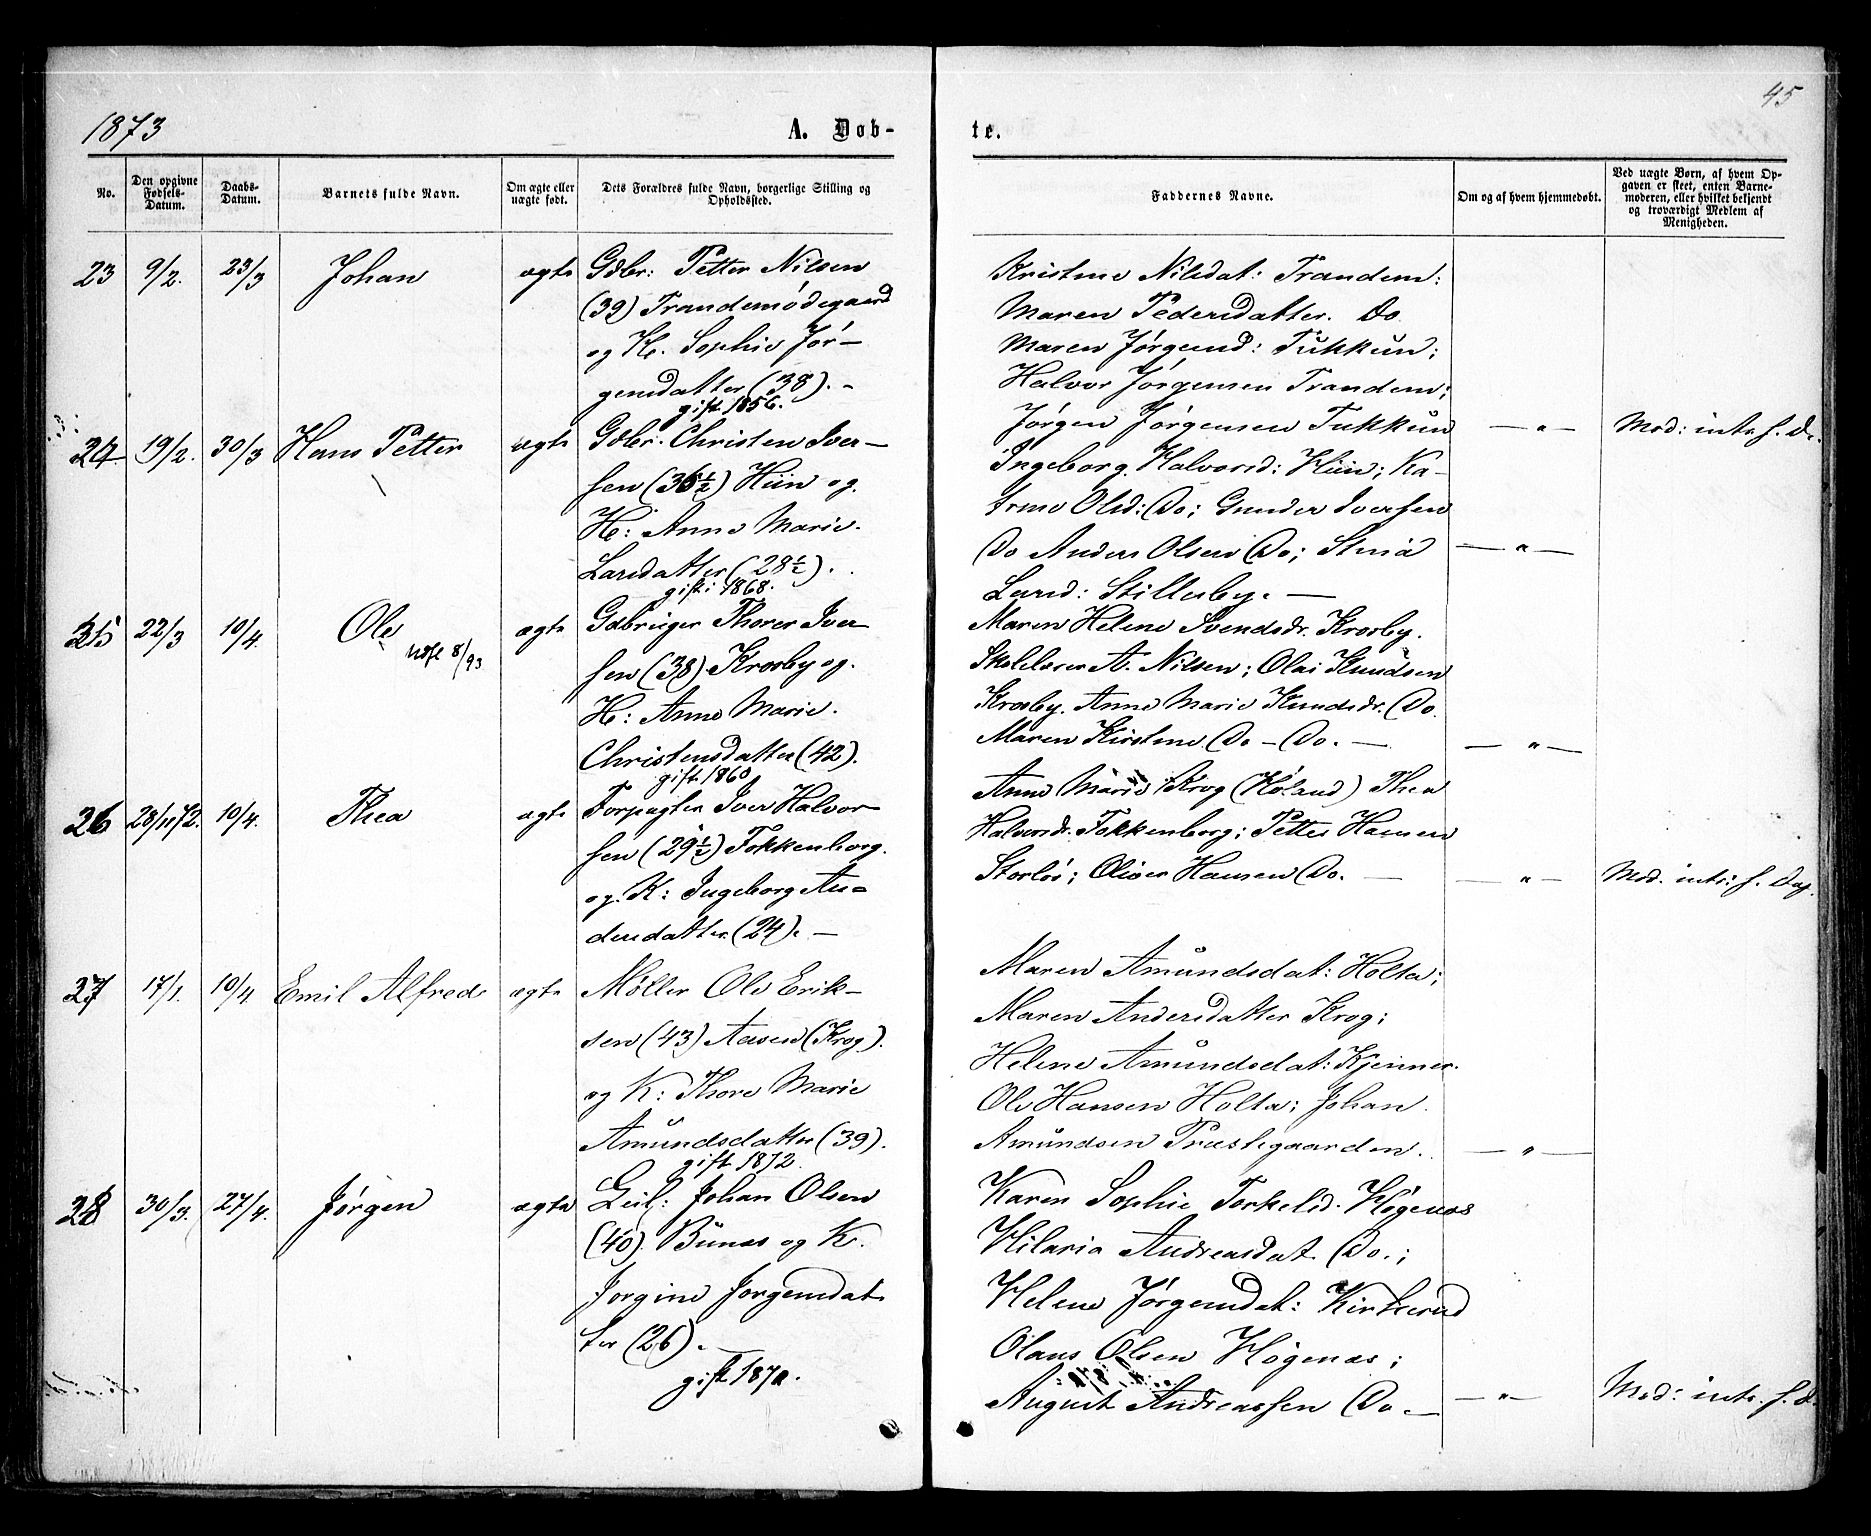 45
1873
A. Døb-
te.
No.
Den opgivne Fødsels-Datum.
Daabs-Datum.
Barnets fulde Navn.
Om ægte eller uægte født.
Dets Forældres fulde Navn, borgerlige Stilling og Opholdssted.
Faddernes Navne.
Om og af hvem hjemmedøbt.
Ved uægte Børn, af hvem Op-
gaven er skeet, enten Barne-
moderen, eller hvilket bekjendt
og troværdigt Medlem af
Menigheden.
23 9/2. 23/3 Johan ægte Gdbr: Petter Nilsen
(39) Trandemødegaard
og H. Sophie Jør-
gensdatter (38). -
gift 1856.
Kristine Nilsdat: Trandem:
Maren Pedersdatter. Do
Maren Jørgensd: Tukkun;
Halvor Jørgensen Trandem;
Jørgen Jørgensen Tukkun — " — Mod: intr. f. D.
24. 19/2. 30/3 Hans Petter ægte Gdbr. Christen Iver-
sen (36½) Hiin og
H: Anne Marie
Larsdatter (28½).
gift: 1868.
Ingeborg Halvorsd: Hiin; Ka-
trine Olsd: Do; Gunder Iversen
Do Anders Olsen Do; Stina — " —
Larsd: Stillesby. —
25 22/3 10/4. Ole ægte Gdbruger Thorer Iver-
8/93
sen (38) Krosby og
H: Anne Marie
Christensdatter (42).
gift 1860
Maren Helene Svendsdr. Krosby.
Skolelærer A. Nilsen; Olai Knudsen
Krosby. Anne Marie Knudsdr. Do.
Maren Kirstine Do - Do. — — " —
26 28/11 72. 10/4. Thea ægte Forpagter Iver Halvor-
sen (29½) Fokkenborg.
og K: Ingeborg An-
dersdatter (24). —
Anne Marie Krog (Høland) Thea
Halvorsdr. Fokkenborg; Petter Hansen
Storløs; Oliver Hansen Do. — — " — Mod. intr: f. Dag.
27 17/1. 10/4 Emil Alfred ægte Møller Ole Erik-
sen (43) Aasen (Krog).
og K: Thore Marie
Amundsdatter (39).
gift 1872.
Maren Amundsdat: Holta;
Maren Andersdatter Krog;
Helene Amundsdat: Kjenner.
Ole Hansen Holta; Johan
Amundsen Præstegaarden. — " —
28 30/3. 27/4. Jørgen ægte Leil: Johan Olsen
(40). Bunæs og K.
Jorgine Jorgensdat
ter (26). -
gift 1870.
Karen Sophie Torkelsd. Høgenæs
Hilaria Andreasdat. Do.;
Helene Jørgensdat: Kirkerud
Olaus Olsen Høgenæs;
August Andreassen Do — — " — Mod: intr. f. D.